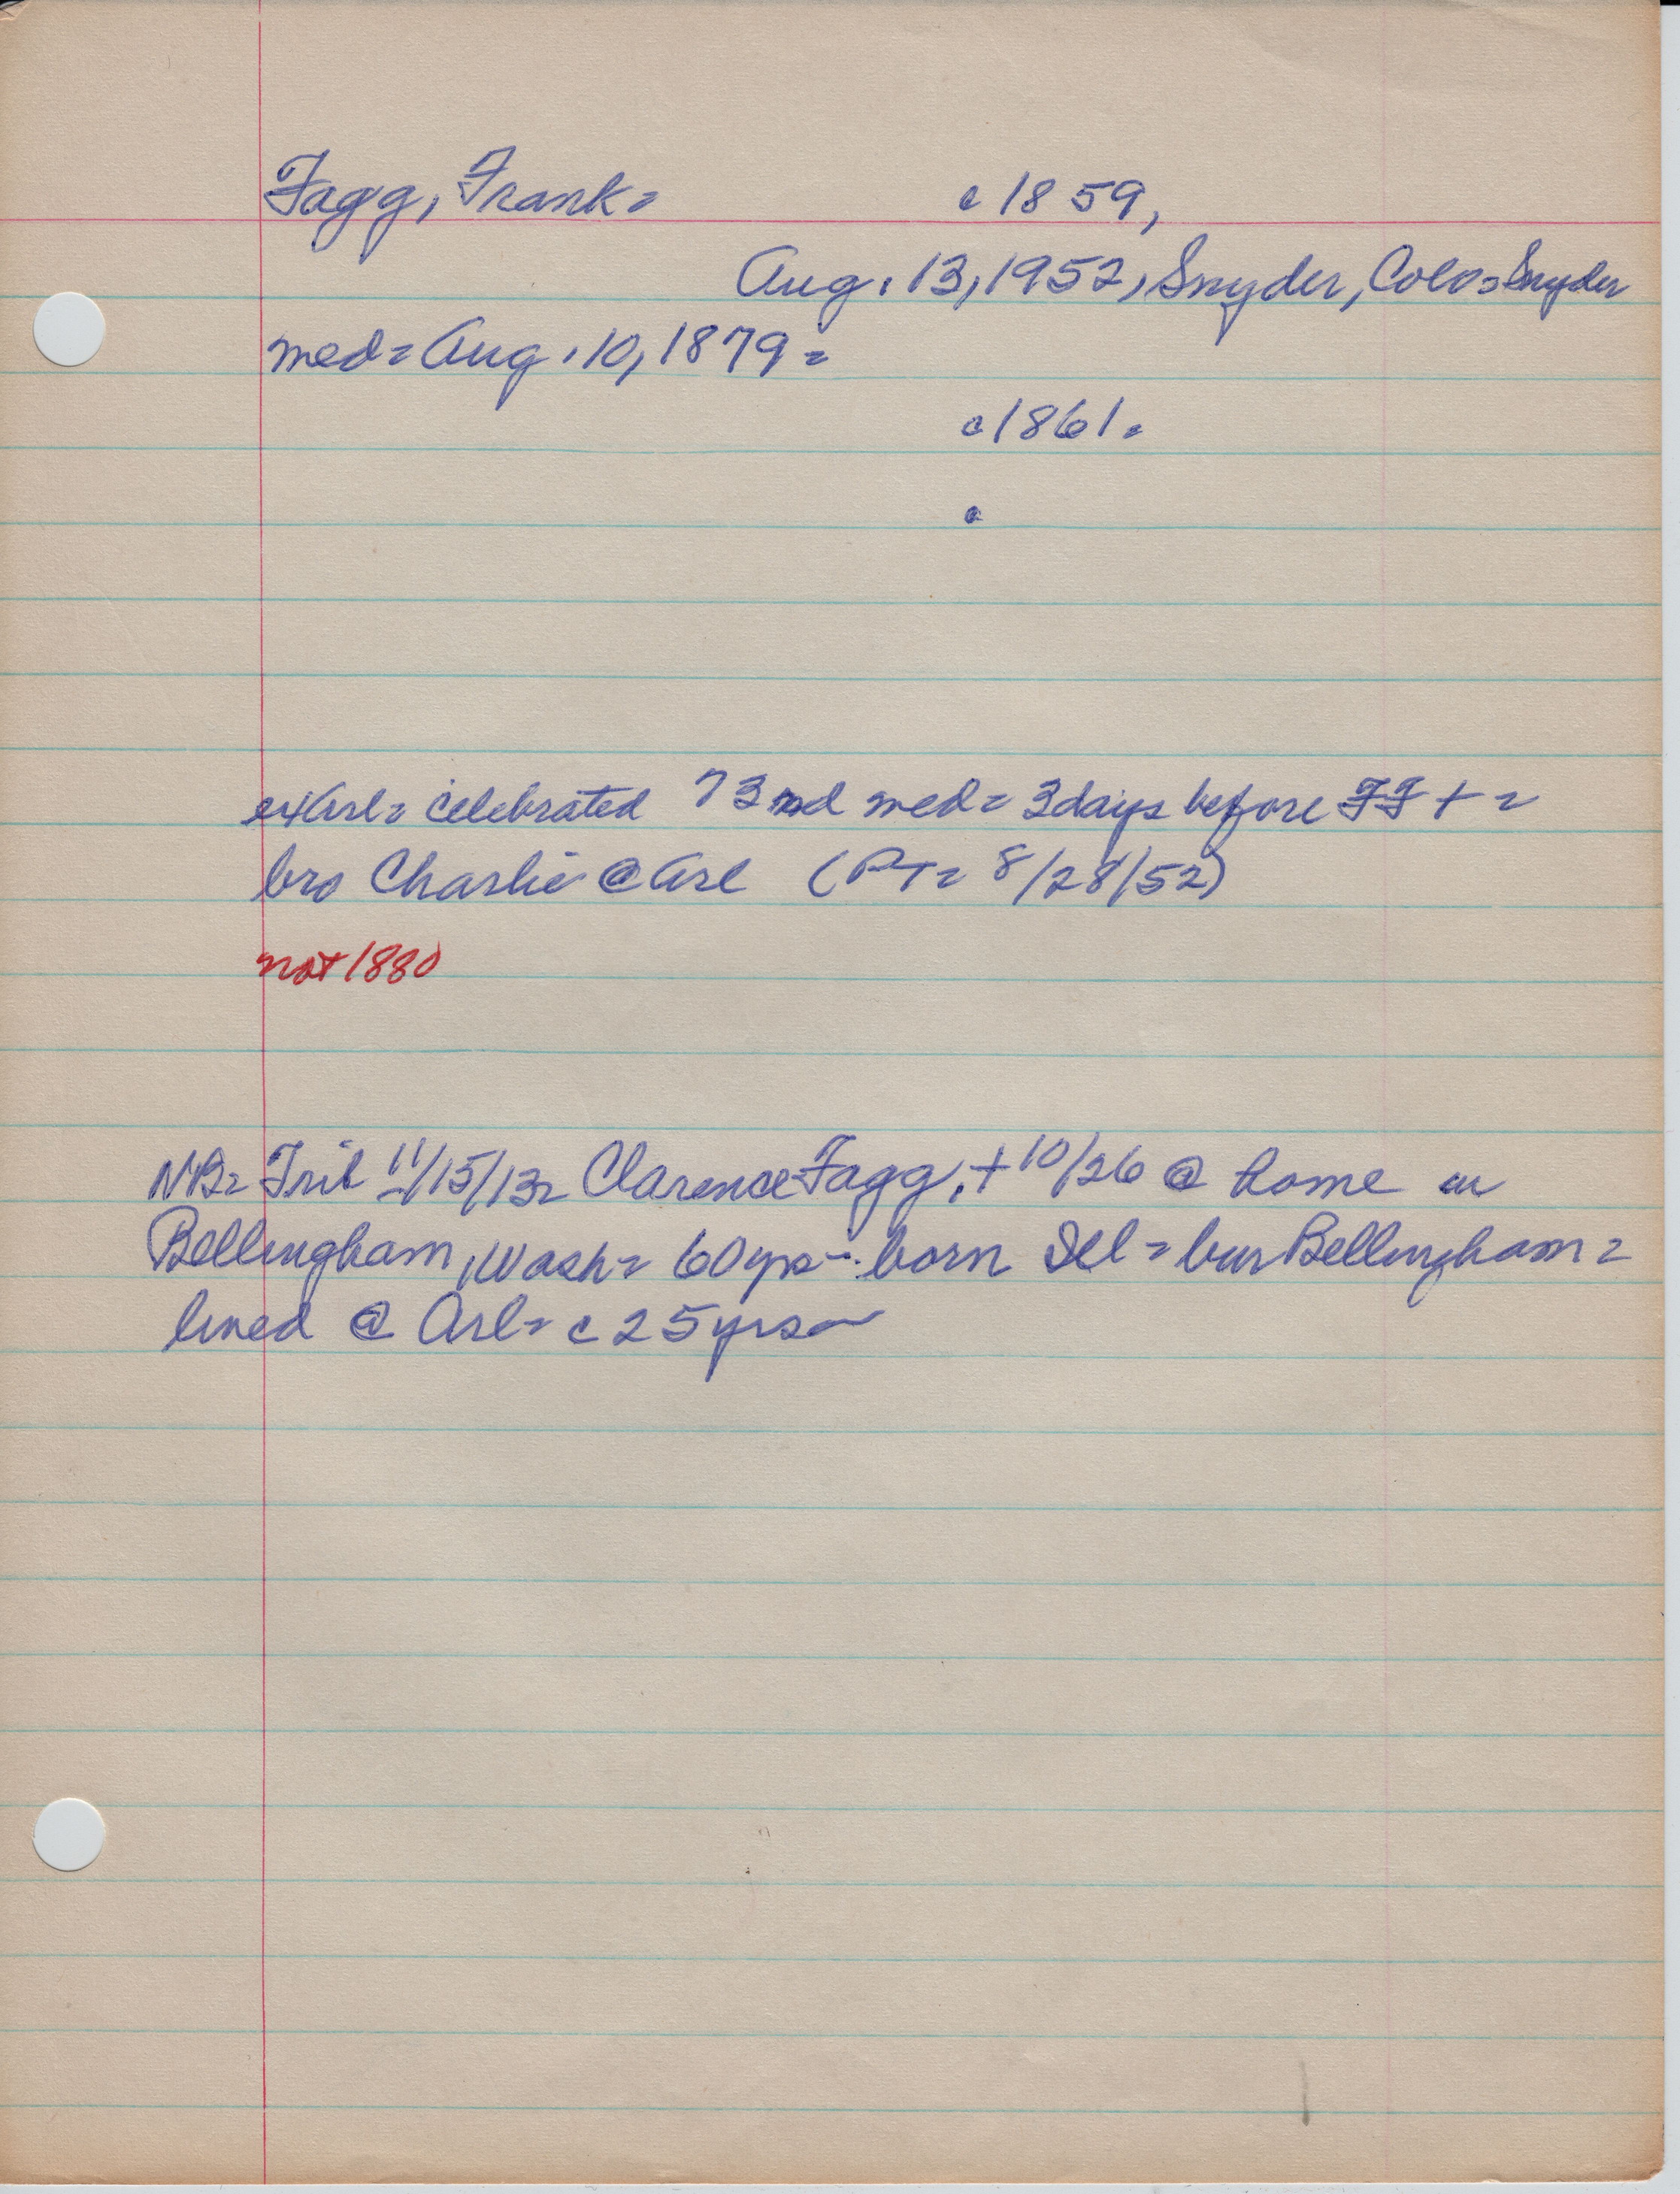 Fagg, Frank= c 1859,
Aug. 13, 1952, Snyder, Colo= Snyder
med= Aug. 10, 1879=
c 1861=
c
exArl= celebrated 73nd med= 3days before FF + =
bro Charlie @ Arl (PT= 8/28/52)
not 1880
NB= Trib 11/15/13= Clarence Fagg, + 10/26 @ home in
Bellingham, Wash= 60yrs= born Ill = bur Bellingham =
lived @ Arl= c 25yrs=